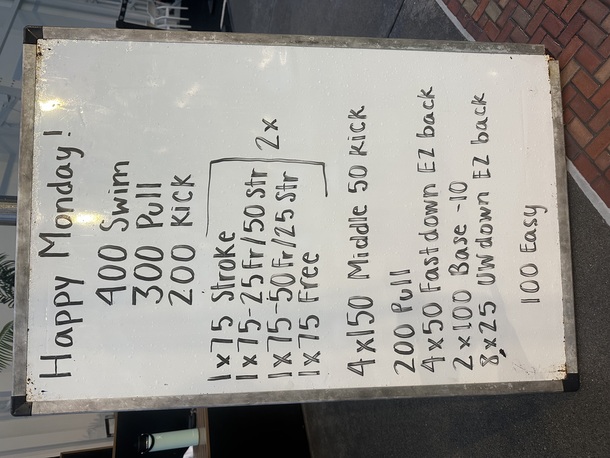 Happy Monday!
400 Swim
300 Pull
200 Kick
1x75 Stroke
1x75-25fr/50 Str
1x75-50fr/25 Str
1x75 Free
2x
4x150 Middle 50 Kick
200 Pull
4x50 Fast down EZ back
2x100 Base -10
8x25 UW down EZ back
100 Easy